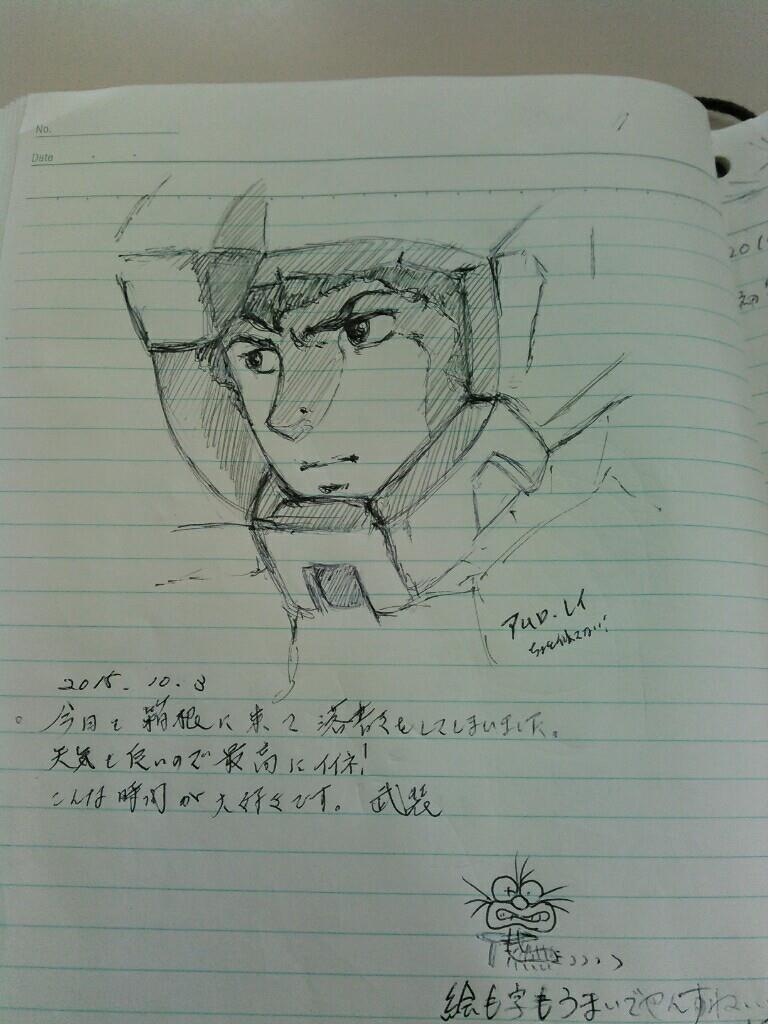 No.
Date
アムロ・レイ
ちょと似てない!
2015. 10. 3
今日も箱根に来て落書きをしてしまいました。
天気も良いので最高にイイネ!
こんな時間が大好きです。 武装
絵も字もうまいでやんすね...
201
初